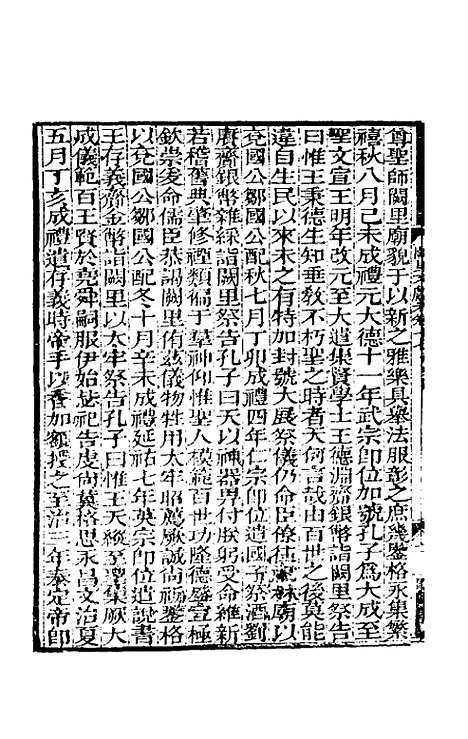 尊聖師闕里廟貌于以新之雅樂具舉法服彭之庶幾鑒格永集繁
禧秋八月己未成禮元大德十一年武宗卽位加號孔子爲大成至
聖文宣王明年改元至大遣集賢學士王德淵齎銀幣詣闕里祭告
曰惟王秉德生知垂敎不朽聖之時者天何言哉由百世之後莫能
違自生民以來未之有特加封號大展祭儀仍命臣僚往林廟以
兗國公鄒國公配秋七月丁卯成禮四年仁宗卽位遣國子祭酒劉
賡齎銀幣雜綵詣闕里祭告孔子曰天以神器畀付朕躬受命維新
若稽舊典肇修禋類徧于羣神仰惟聖人模範百世功隆德盛宜極
欽崇爰命儒臣恭謁闕里侑茲儀物牲用太牢昭薦厥誠尚祈鑒格
以兗國公鄒國公配冬十月辛未成禮延祐七年英宗卽位遣說書
王存義齎金幣詣闕里以太牢祭告孔子曰惟王天縱至聖集厥大
成儀範百王賢於堯舜嗣服伊始是祀告虔尚冀格思永昌文治夏
五月丁亥成禮遣存義時帝手以香加額授之至治三年泰定帝卽